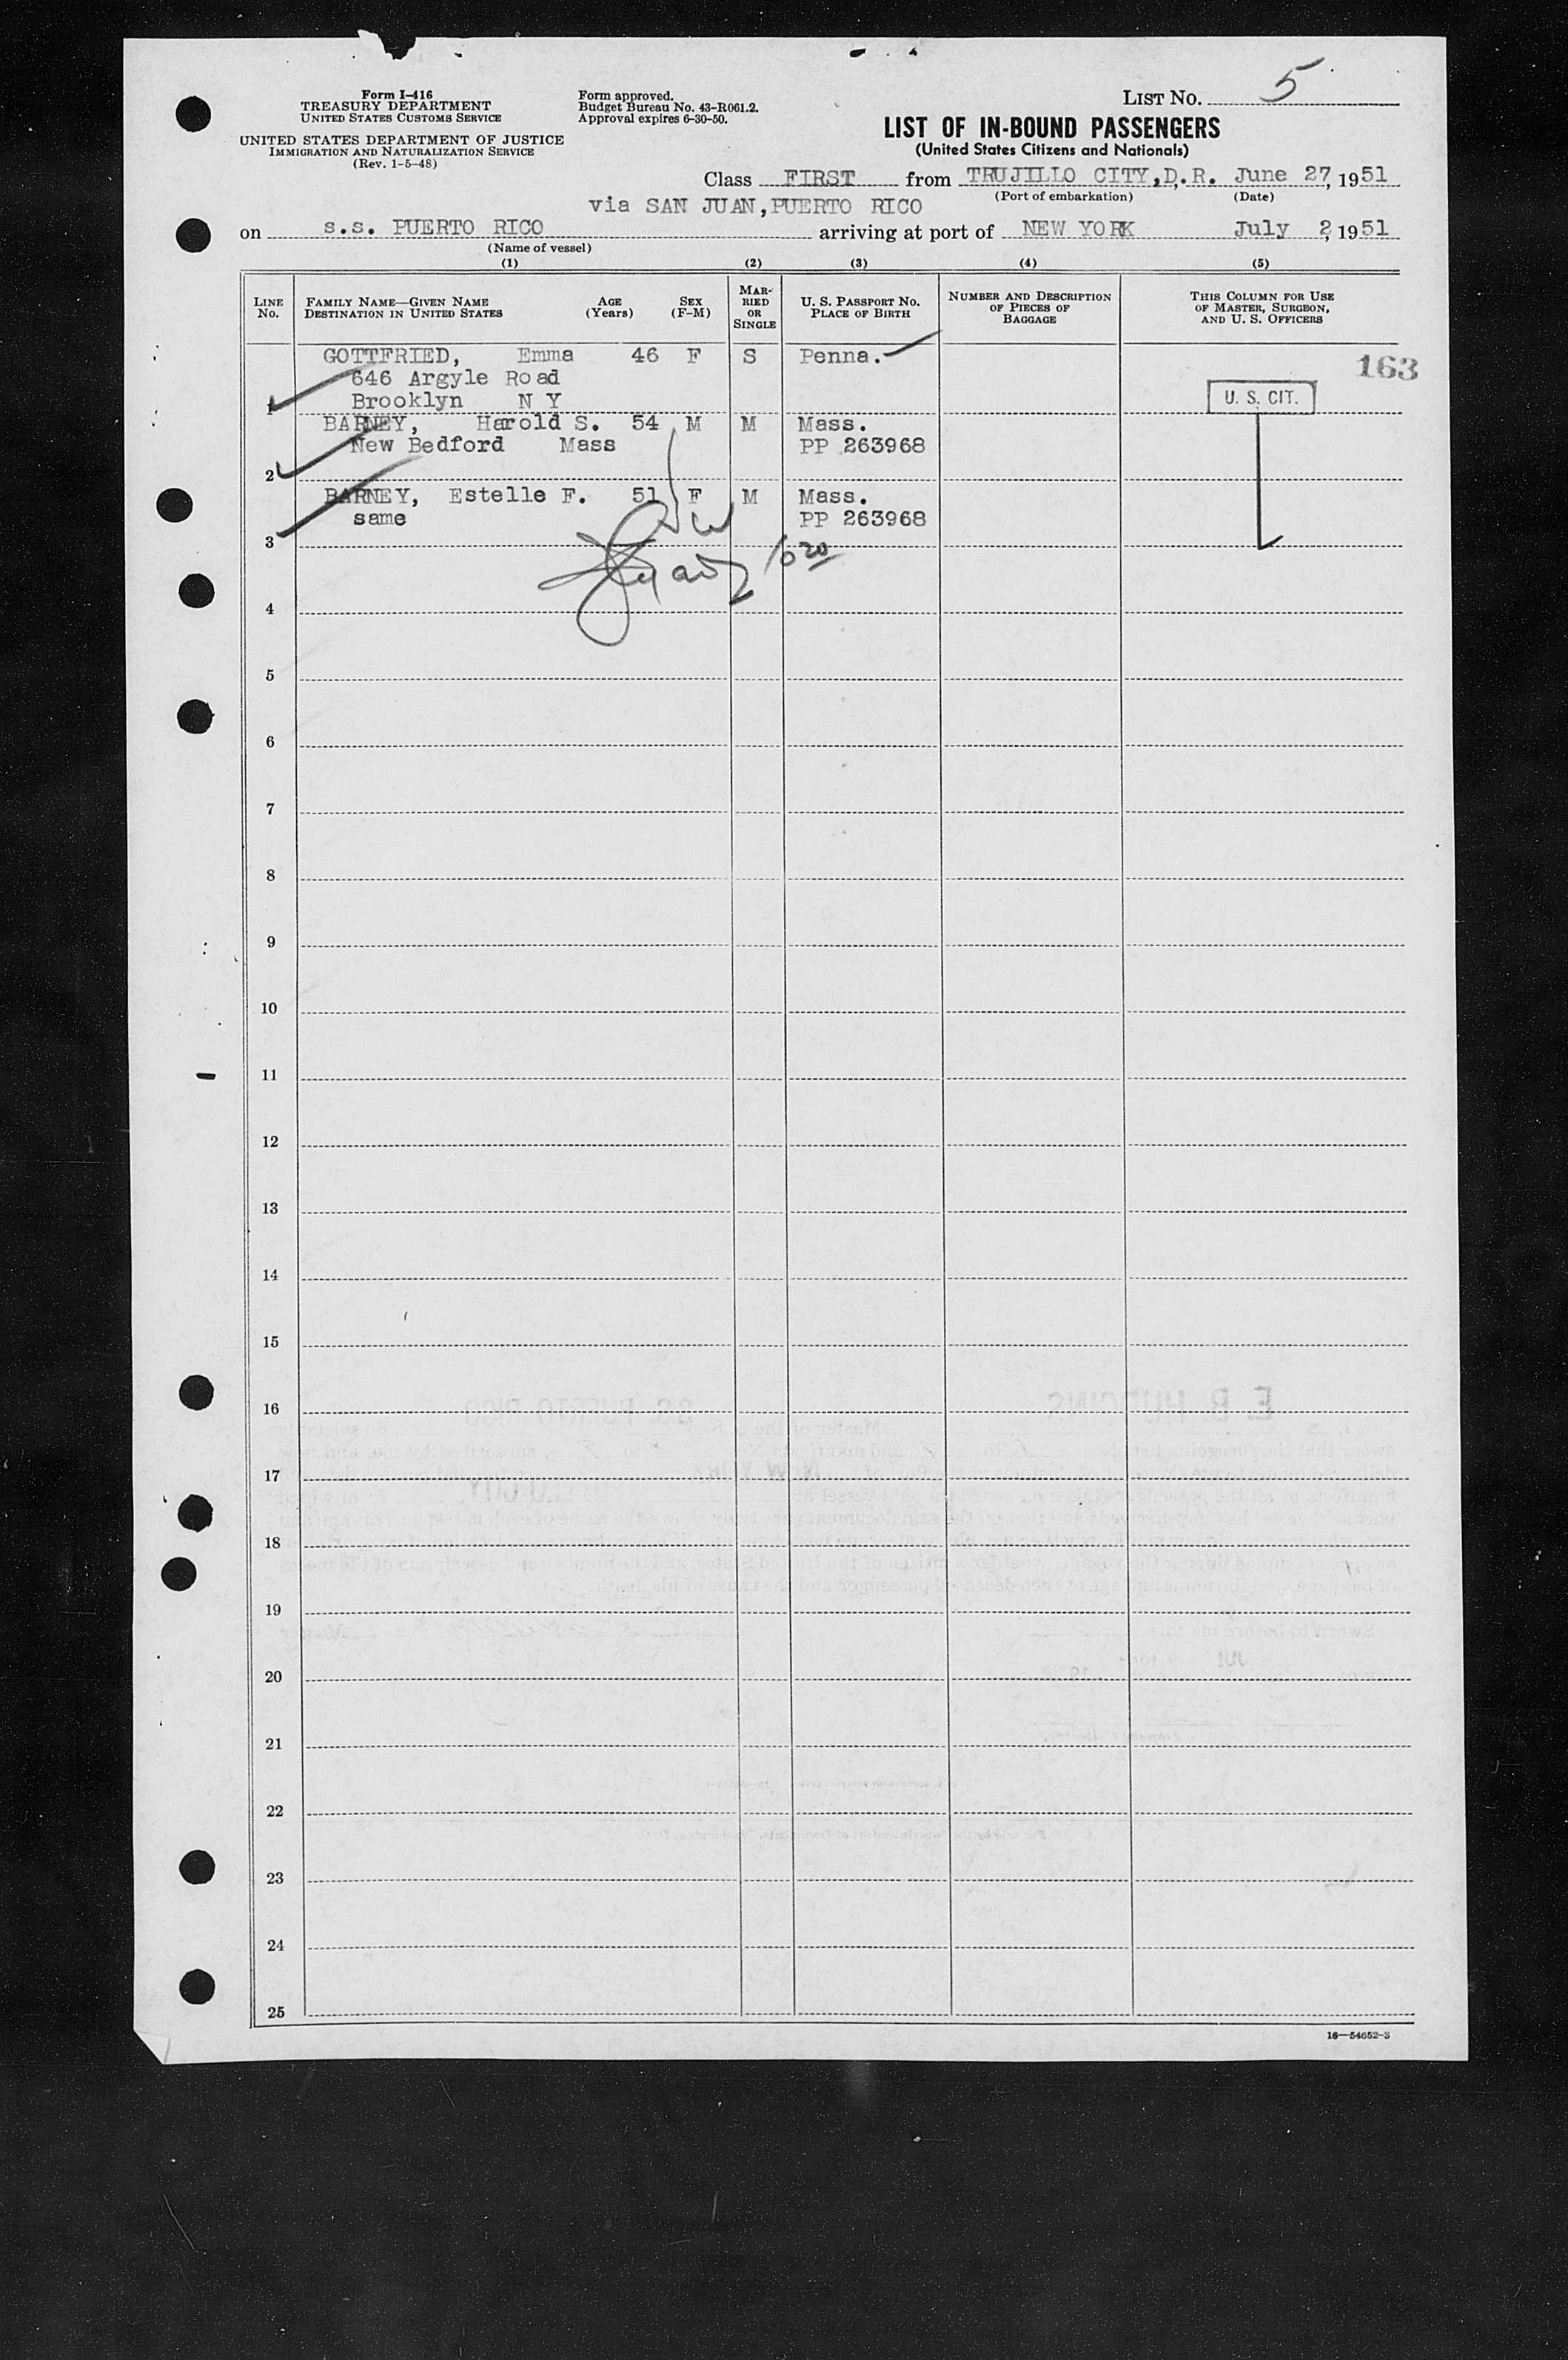 Form I-416
TREASURY DEPARTMENT
UNITED STATES CUSTOMS SERVICE
UNITED STATES DEPARTMENT OF JUSTICE
IMMIGRATION AND NATURALIZATION SERVICE
(Rev. 1-5-48)
Form approved.
Budget Bureau No. 43-R061.2.
Approval expires 6-30-50.
LIST NO. 5
LIST OF IN-BOUND PASSENGERS
(United States Citizens and Nationals)
Class FIRST from TRUJILLO CITY, D.R. June 27, 1951
(Port of embarkation) (Date)
via SAN JUAN, PUERTO RICO
on s.s. PUERTO RICO arriving at port of NEW YORK July 2, 1951
(Name of vessel)
(1) (2) (3) (4) (5)
LINE No.
FAMILY NAME—GIVEN NAME
DESTINATION IN UNITED STATES
AGE (Years)
SEX (F-M)
MARRIED OR SINGLE
U. S. PASSPORT NO.
PLACE OF BIRTH
NUMBER AND DESCRIPTION OF PIECES OF BAGGAGE
THIS COLUMN FOR USE OF MASTER, SURGEON, AND U. S. OFFICERS
GOTTFRIED, Emma 46 F S Penna. 163
646 Argyle Road
1 Brooklyn N Y U. S. CIT.
BARNEY, Harold S. 54 M M Mass.
New Bedford Mass PP 263968
2
BARNEY, Estelle F. 51 F M Mass.
same PP 263968
3
4
5
6
7
8
9
10
11
12
13
14
15
16
17
18
19
20
21
22
23
24
25
16—54652-3